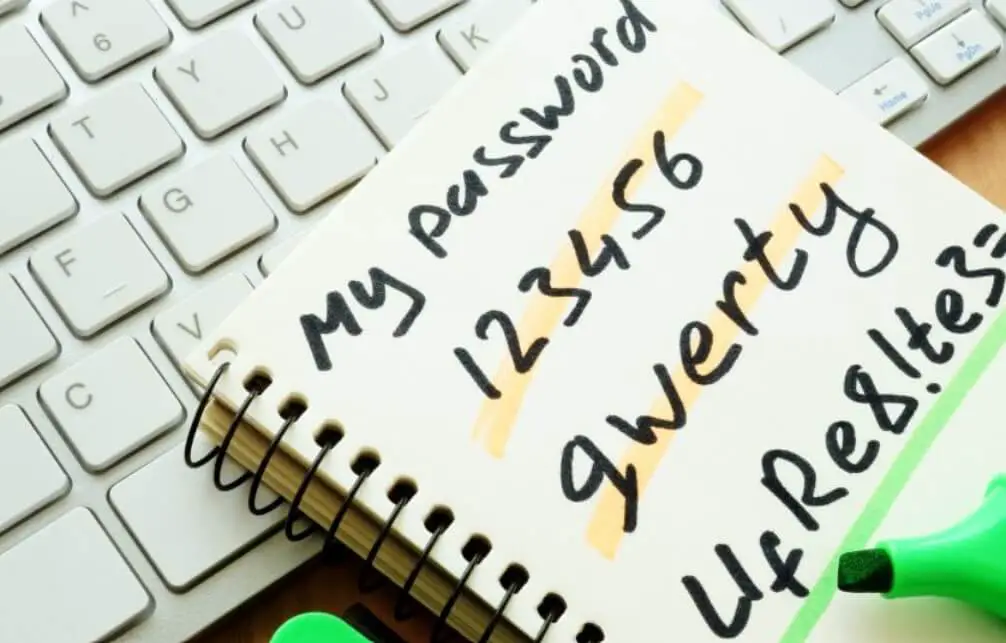 My password
123456
qwerty
4fRe8!te3=
^
6
Y
U
K
T
H
J
G
F
V
C
PgUp
PgDn
Home